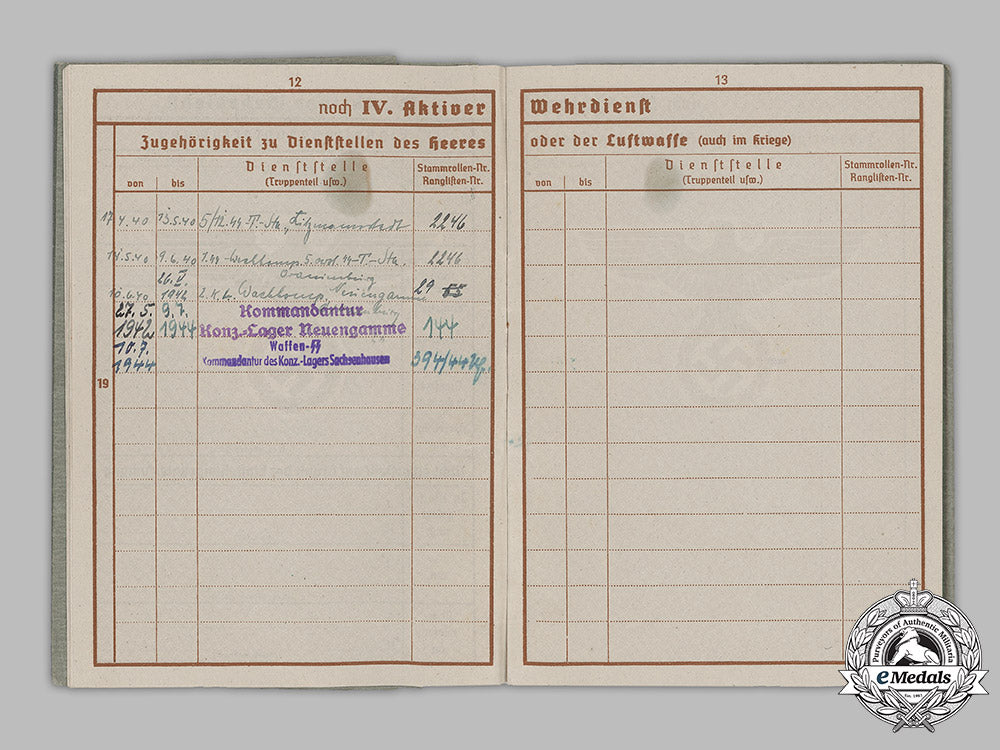 12
noch IV. Aktiver
Zugehörigkeit zu Dienststellen des Heeres
von bis Dienststelle (Truppenteil usw.) Stammrollen-Nr. Ranglisten-Nr.
17.4.40 13.5.40 5/12.SS-T.-Sta. "Litzmannstadt 2246
14.5.40 9.6.40 1.SS-Wachkomp. 5. SS-T.-Sta. 2246
Oranienburg
10.6.40 26.V. 1942 2. K.L. Wachkomp. Neuengamme 29
27.5. 1942 9.7. 1944 Kommandantur
Konz.-Lager Neuengamme 144
10.7. 1944 Waffen-SS
Kommandantur des Konz.-Lagers Sachsenhausen 394/44
19
13
Wehrdienst
oder der Luftwaffe (auch im Kriege)
von bis Dienststelle (Truppenteil usw.) Stammrollen-Nr. Ranglisten-Nr.
Purveyors of Authentic Militaria
eMedals